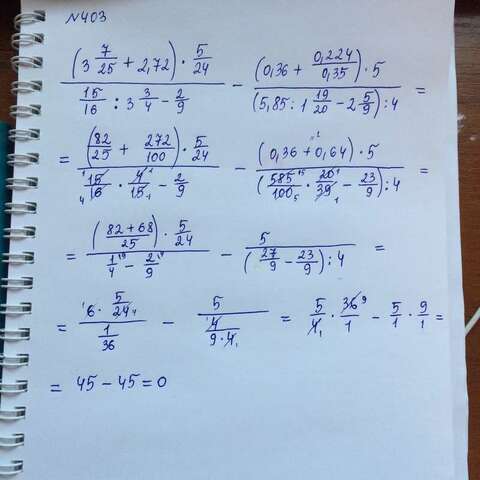 №403
((3 7/25 + 2,72) · 5/24) / (15/16 : 3 3/4 − 2/9) − ((0,36 + 0,224/0,35) · 5) / ((5,85 : 1 19/20 − 2 5/9) : 4) =
= ((82/25 + 272/100) · 5/24) / (15/16 · 4/15 − 2/9) − ((0,36 + 0,64) · 5) / ((585/100 · 20/39 − 23/9) : 4) =
= ((82 + 68)/25 · 5/24) / (1/4 − 2/9) − 5 / ((27/9 − 23/9) : 4) =
= (6 · 5/24) / (1/36) − 5 / (4/(9 · 4)) = 5/4 · 36/1 − 5/1 · 9/1 =
= 45 − 45 = 0